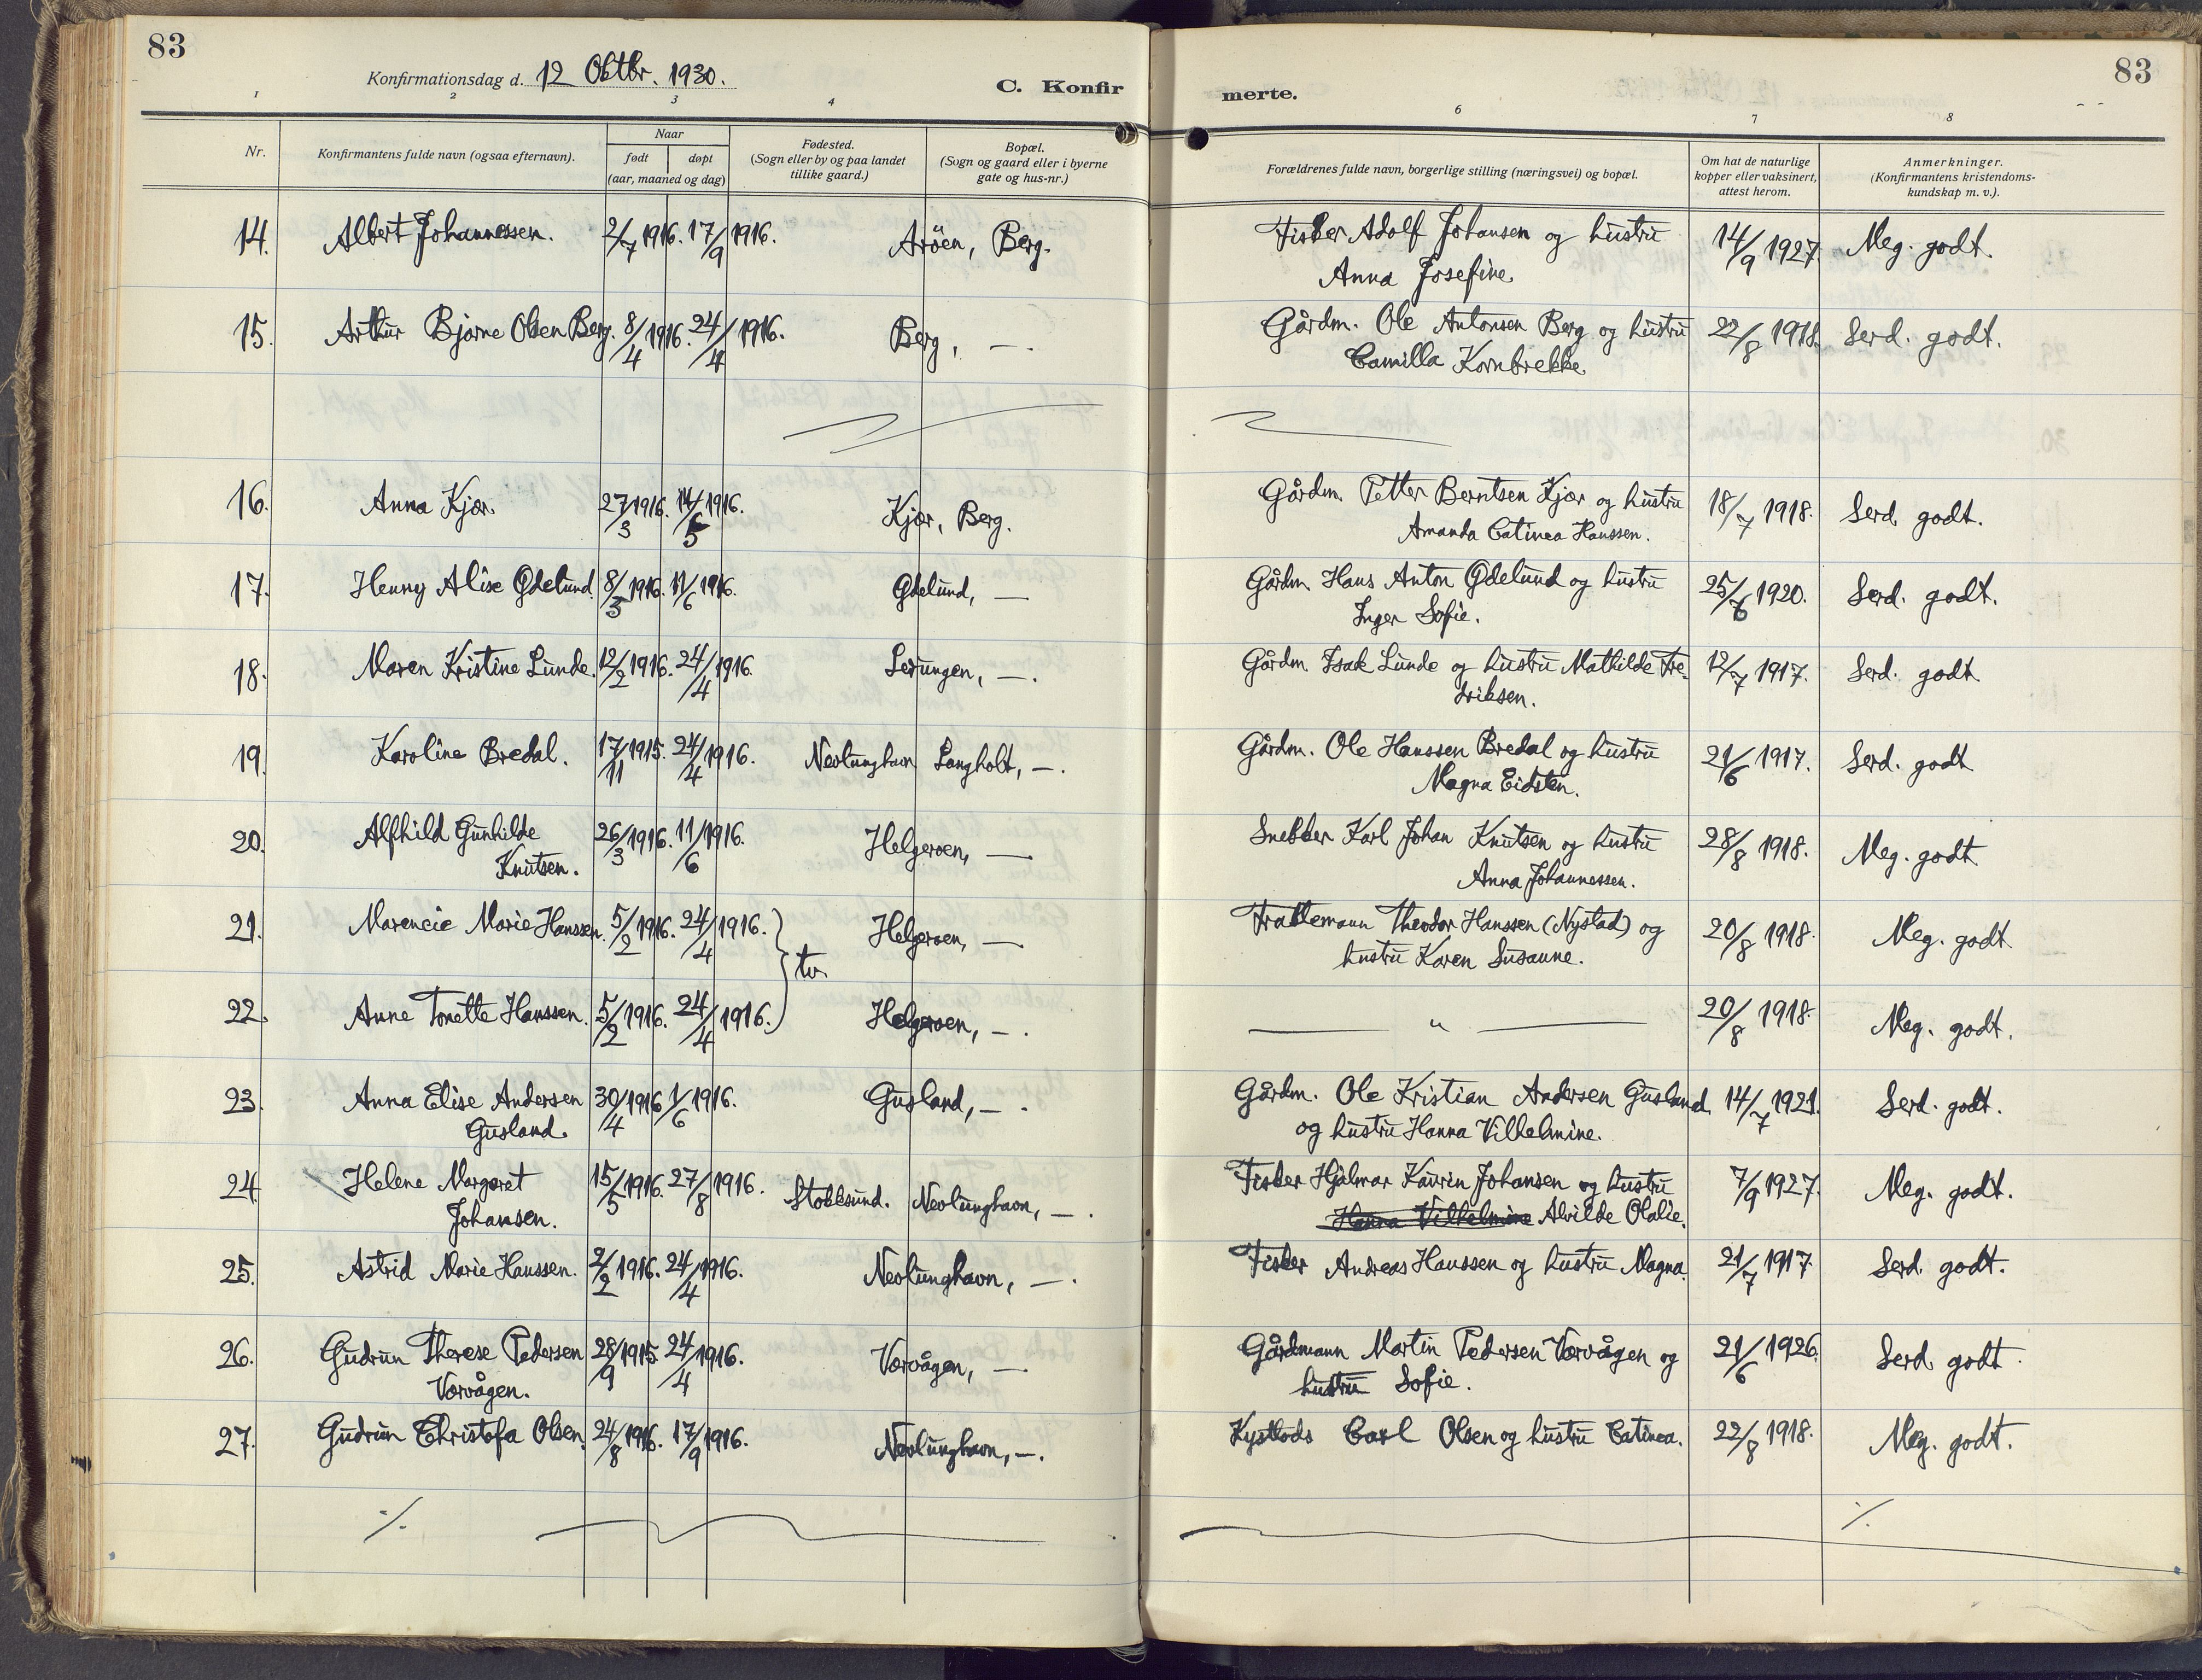 83
Konfirmationsdag d. 12 Oktbr. 1930.
C. Konfir
merte.
83
1 2 3 4 6 7 8
Nr.
Konfirmantens fulde navn (ogsaa efternavn).
Naar
født døpt
(aar, maaned og dag)
Fødested.
(Sogn eller by og paa landet
tillike gaard.)
Bopæl.
(Sogn og gaard eller i byerne
gate og hus-nr.)
Forældrenes fulde navn, borgerlige stilling (næringsvei) og bopæl.
Om hat de naturlige
kopper eller vaksinert,
attest herom.
Anmerkninger.
(Konfirmantens kristendoms-
kundskap m. v.).
14. Albert Johannessen. 2/7 1916. 17/9 1916. Arøen, Berg. Fisker Adolf Johansen og hustru 14/9 1927. Meg. godt.
Anna Josefine.
15. Arthur Bjarne Olsen Berg. 8/4 1916. 24/4 1916. Berg, —. Gårdm. Ole Antonsen Berg og hustru 22/8 1918. Serd. godt.
Camilla Kornbrekke.
16. Anna Kjær. 27/3 1916. 14/5 1916. Kjær, Berg. Gårdm. Petter Berntsen Kjær og hustru 18/7 1918. Serd. godt.
Amanda Catinea Hanssen.
17. Henny Alise Ødelund. 8/3 1916. 11/6 1916. Ødelund, — Gårdm. Hans Anton Ødelund og hustru 25/6 1920. Serd. godt.
Inger Sofie.
18. Maren Kristine Lunde. 12/2 1916. 24/4 1916. Lerungen, —. Gårdm. Isak Lunde og hustru Mathilde Fre- 12/7 1917. Serd. godt.
driksen.
19. Karoline Bredal. 17/11 1915. 24/4 1916. Nevlunghavn Langholt, —. Gårdm. Ole Hanssen Bredal og hustru 21/6 1917. Serd. godt.
Magna Eidsten.
20. Alfhild Gunhilde 26/3 1916. 11/6 1916. Helgeroen, — Snekker Karl Johan Knutsen og hustru 28/8 1918. Meg. godt.
Knutsen. Anna Johannessen.
21. Marencie Marie Hanssen. 5/2 1916. 24/4 1916. Helgeroen, — Fraktemann Theodor Hanssen (Nystad) og 20/8 1918. Meg. godt.
tv. hustru Karen Susanne.
22. Anne Tonette Hanssen. 5/2 1916. 24/4 1916. Helgeroen, —. — " — 20/8 1918. Meg. godt.
23. Anna Elise Andersen 30/4 1916. 1/6 1916. Gusland, —. Gårdm. Ole Kristian Andersen Gusland 14/7 1921. Serd. godt.
Gusland. og hustru Hanna Vilhelmine.
24. Helene Margaret 15/5 1916. 27/8 1916. Stokksund. Nevlunghavn, —. Fisker Hjalmar Kaurin Johansen og hustru 7/9 1927. Meg. godt.
Johansen. Hanna Vilhelmine Alvilde Olalie.
25. Astrid Marie Hanssen. 2/2 1916. 24/4 1916. Nevlunghavn, —. Fisker Andreas Hanssen og hustru Magna. 21/7 1917. Serd. godt.
26. Gudrun Therese Pedersen 28/9 1915. 24/4 1916. Værvågen, — Gårdmann Martin Pedersen Værvågen og 21/6 1926. Serd. godt.
Værvågen. hustru Sofie.
27. Gudrun Christofa Olsen. 24/8 1916. 17/9 1916. Nevlunghavn, —. Kystlods Carl Olsen og hustru Catinea. 22/8 1918. Meg. godt.